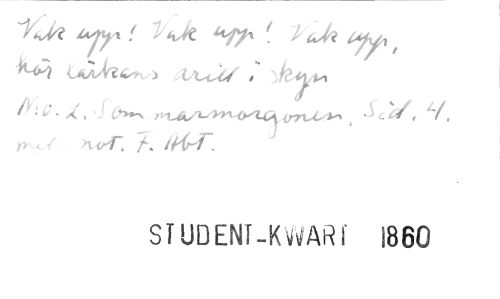 Vak upp! Vak upp! Vak upp,
hör lärkans drill i skyn
N:o. 2. Sommarmorgonen, Sid. 4.
med not. F. Abt.
STUDENT-KWART 1860